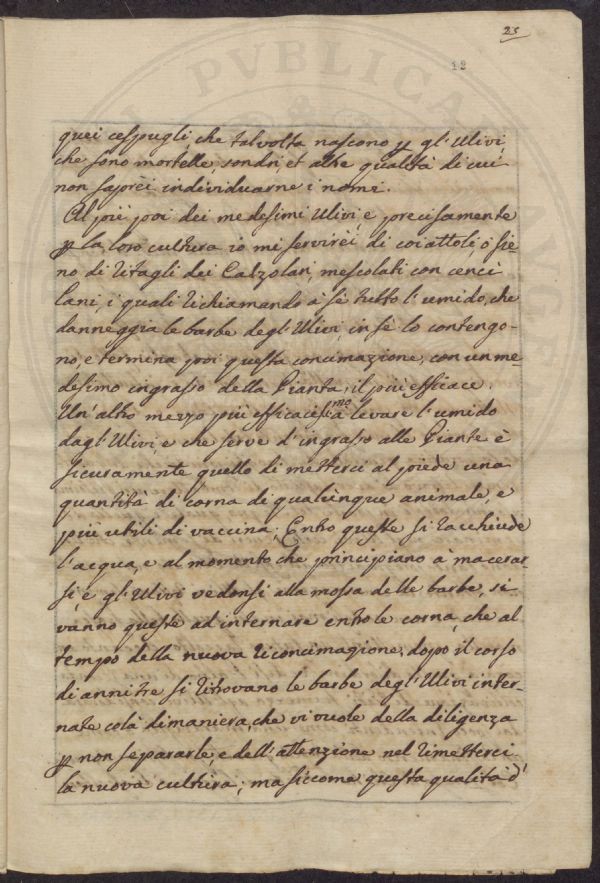 25
12
quei cespugli, che talvolta nascono p gl'Ulivi,
che sono mortelle, sondri, et altre qualità di cui
non saprei individuarne i nomi.
Al piè poi dei medesimi Ulivi, e precisamente
p la loro cultura io mi servirei di coiattoli, o sie-
no di ritagli dei Calzolari, mescolati con cenci
lani, i quali richiamando à sé tutto l'umido, che
danneggia le barbe degl'Ulivi, in sé lo contengo-
no, e termina poi questa concimazione, con un me-
desimo ingrasso della Pianta, il più efficace.
Un'altro mezzo più efficacissi.mo à levare l'umido
dagl'Ulivi, e che serve d'ingrasso alle Piante è
sicuramente quello di metterci al piede una
quantità di corna di qualunque animale, e
più utili di vaccina; Entro queste si racchiude
l'acqua, e al momento che principiano à macerar-
si, e gl'Ulivi vedonsi alla mossa delle barbe, si
vanno queste ad internare entro le corna, che al
tempo della nuova riconcimazione, dopo il corso
di anni tre si ritrovano le barbe degl'Ulivi inter-
nate colà di maniera, che vi vuole della diligenza
p non separarle, e dell'attenzione nel rimetterci
la nuova cultura; ma siccome questa qualità d'